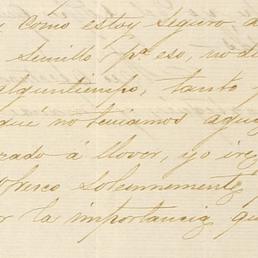 y como estoy seguro d
Senillo pa eso, no du
algun tiempo, tanto
que no teniamos agua
zado á llover, yo ire
ofresco solemnemente
r la importancia qu